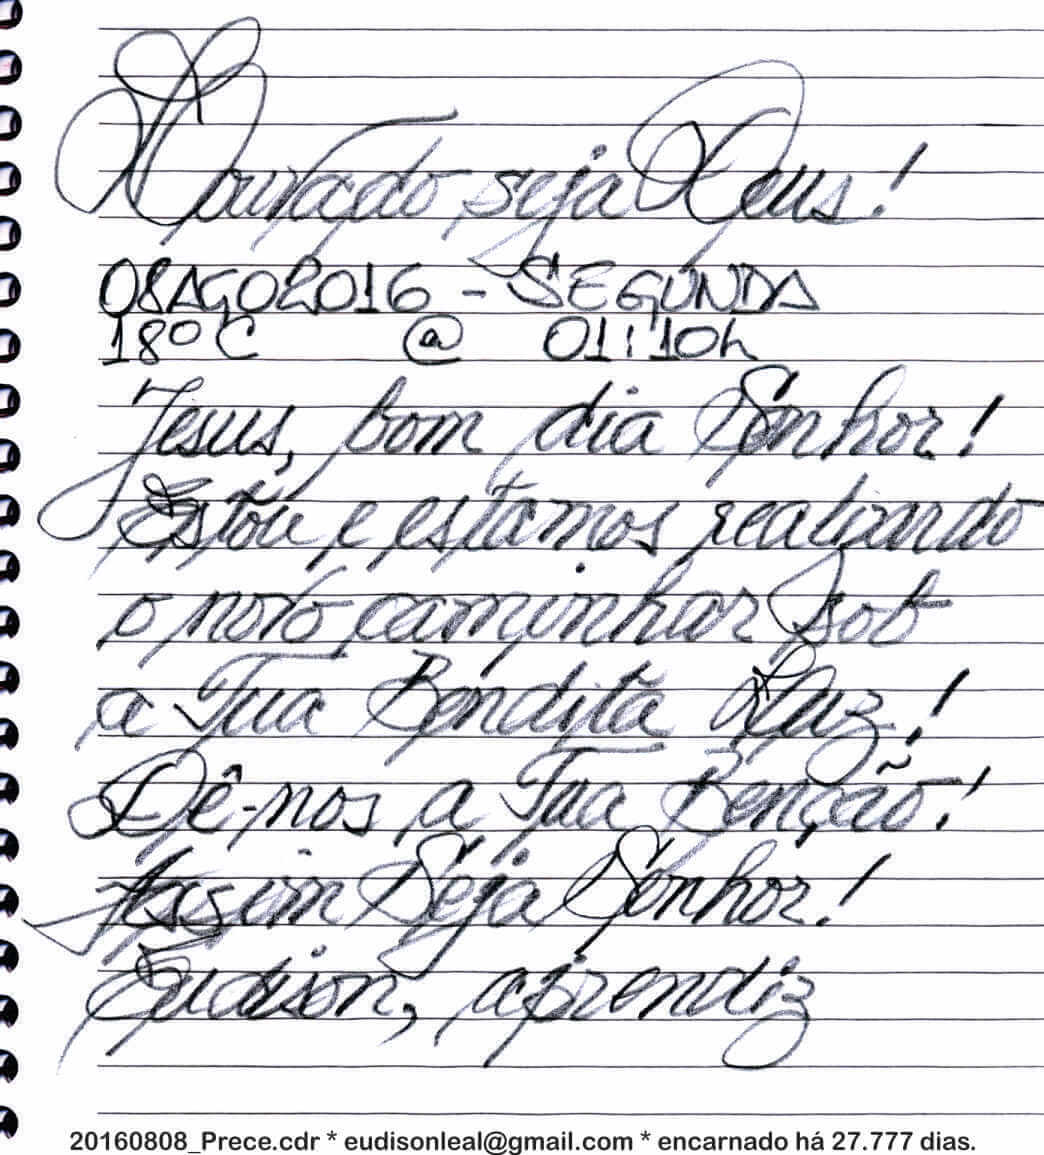 Louvado seja Deus!
08AGO2016 - SEGUNDA
18º C @ 01:10h
Jesus, bom dia Senhor!
Estou e estamos realizando
o novo caminhar sob
a Tua Bendita Luz!
Dê-nos a Tua Benção!
Assim Seja Senhor!
Eudison, aprendiz
20160808_Prece.cdr * eudisonleal@gmail.com * encarnado há 27.777 dias.